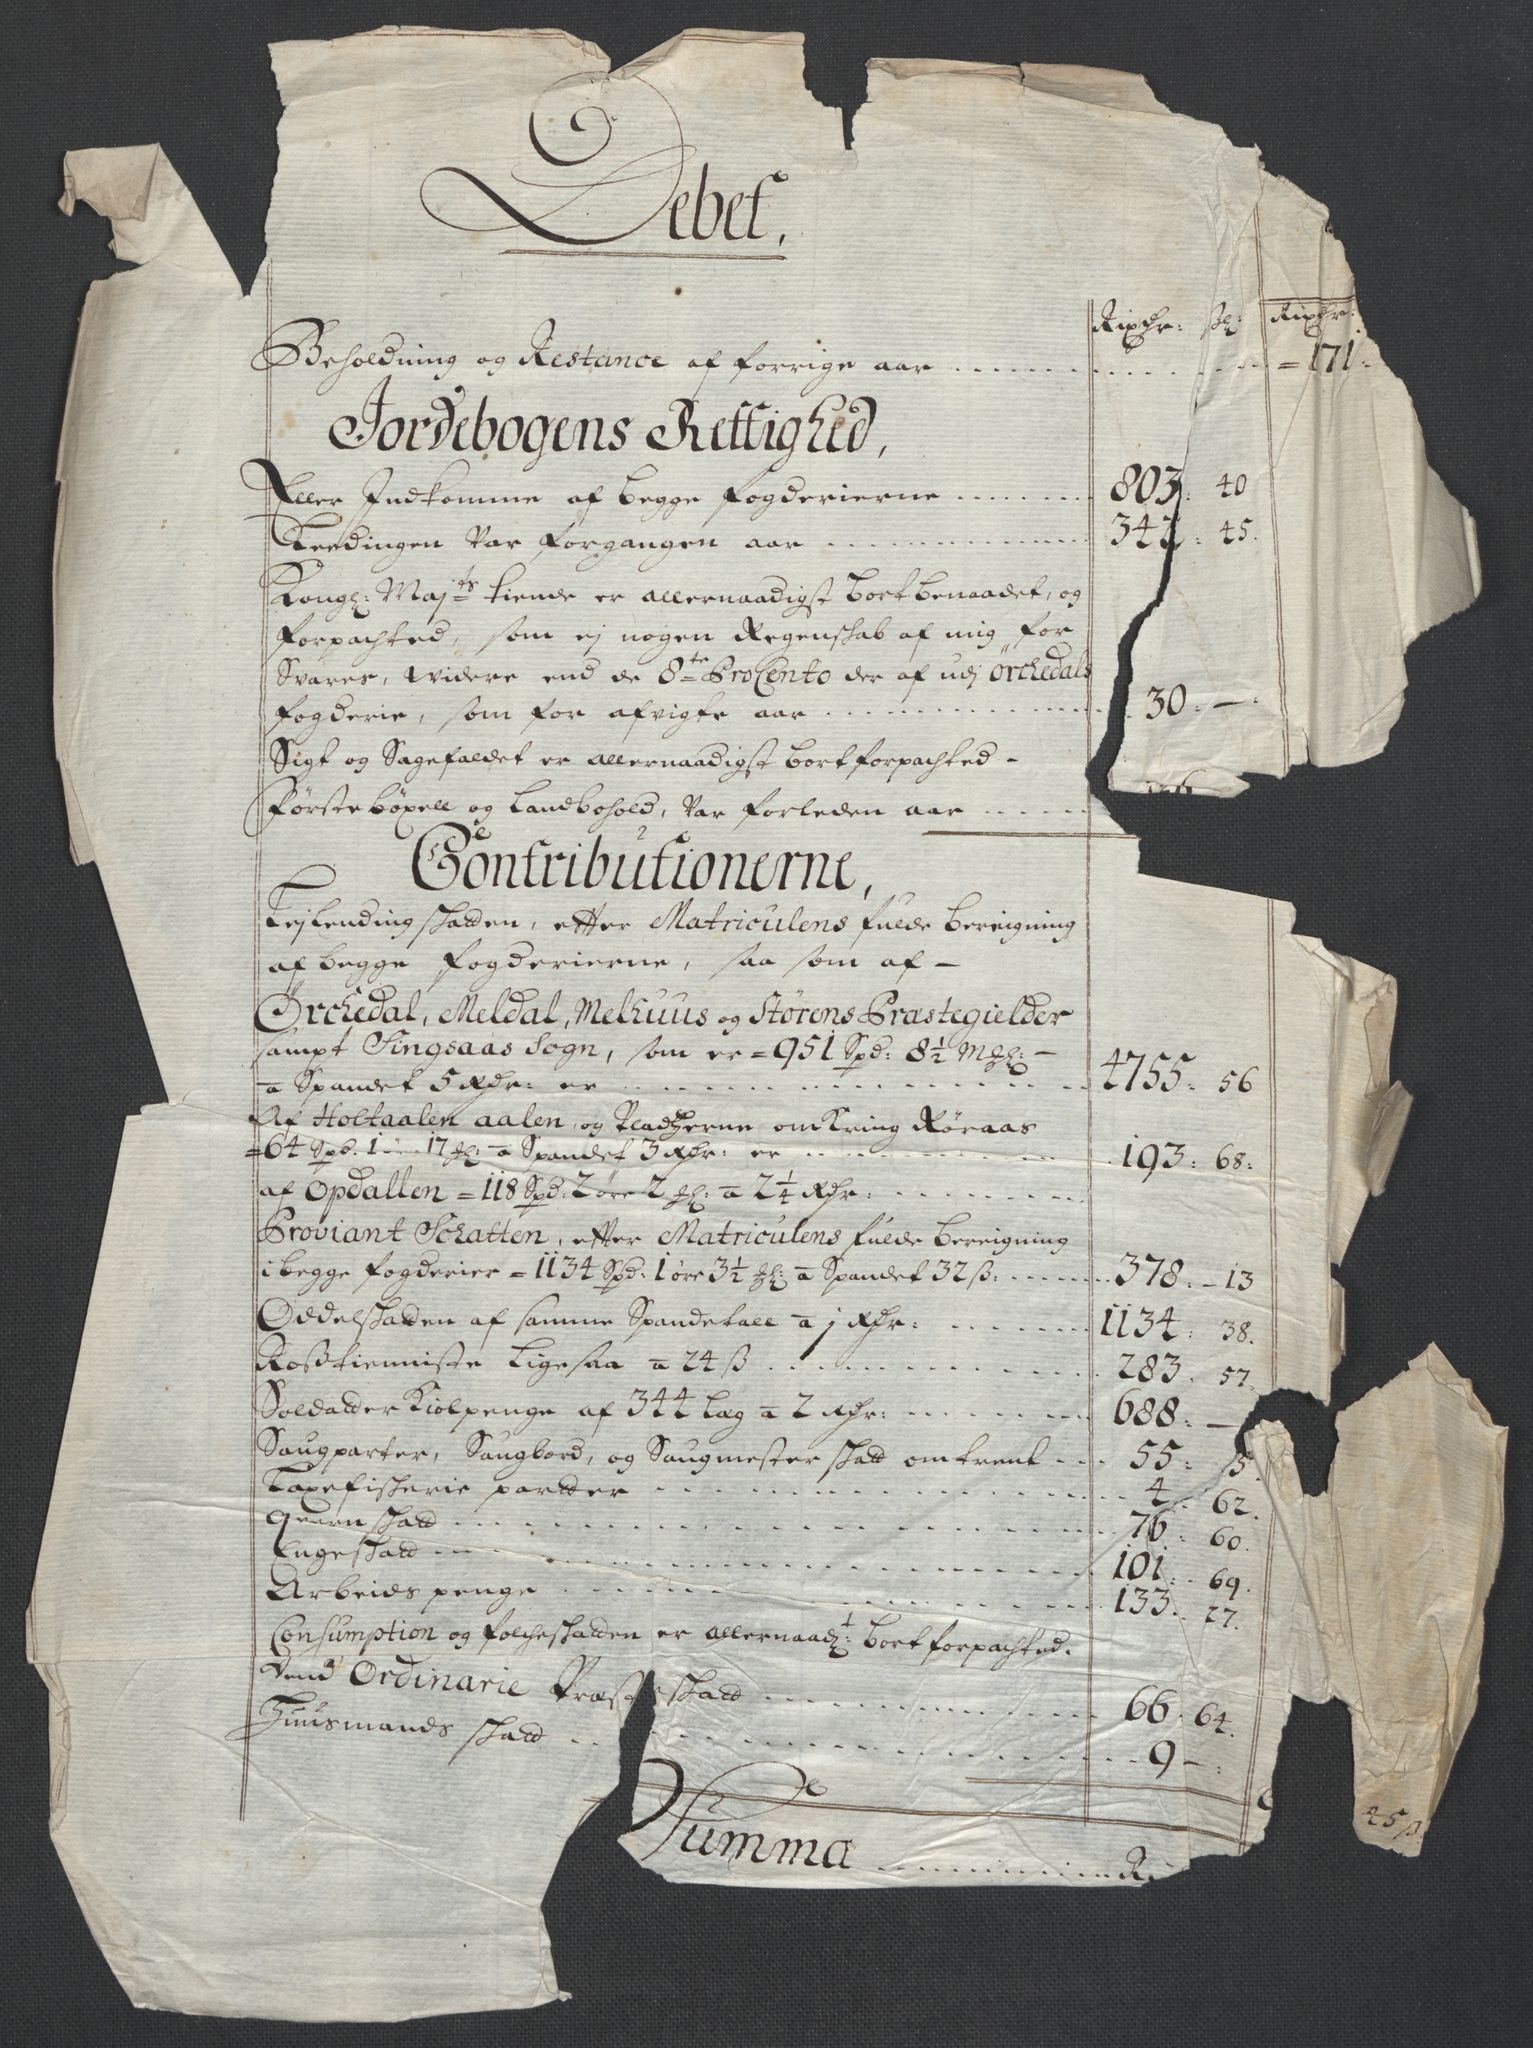 Debet,
Rixdr: ß: Rixdr:
Beholdning og Restance af forrige aar ..... = 171:
Jordebogens Rettighed,
Eller Indkomme af begge fogderierne ..... 803: 40
Leedingen var forgangen aar ..... 342: 45.
Kongl: Maj:ts tiende er allernaadigst bortbenaadet, og
forpachted, som ej nogen Regenskab af mig for
Svares, widere end de 8te ProCento der af udj Örchedals
fogderie, som for afvigte aar ..... 30: —
Sigt og Sagefaldet er allernaadigst bortforpachted -
Försteböxell og Landbohold, var forleden aar .....
Contributionerne,
Lejlendingskatten, effter Matriculens fulde bereigning
af begge fogderierne, saa som af -
Örchedal, Meldal, Melhuus og Störens Præstegielder
sampt Singsaas Sogn, som er = 951 Spd: 8½ Mgl: -
a Spandet 5 Rdr: er ..... 4755: 56
Af Holtaalen aalen, og Pladzerne omkring Röraas
= 64 Spd: 1 öre 17 gl: a Spandet 3 Rdr: er ..... 193: 68:
af Opdallen = 118 Spd: 2 öre 2 gl: a 2¼ Rdr: .....
Proviant Schatten, effter Matriculens fulde bereigning
i begge fogderier = 1134 Spd: 1 öre 3½ gl: a Spandet 32 ß: ..... 378: - 13
Oddelskatten af samme Spandetall a 1 Rdr: ..... 1134: 38.
Rosztienniste ligesaa a 24 ß ..... 283: 57.
Soldatter Kiolpenge af 344 læg a 2 Rdr: ..... 688: —
Saugparter, Saugbord, og Saugmester skatt omtrent ... 55:
Laxefiskerie partter ..... 4: 62.
Qvern skatt ..... 76: 60.
Engeskatt ..... 101: 69.
Arbeids penge ..... 133: 27.
Consumption og folcheskatten er allernaadl: bortforpachted.
Dend Ordinarie Præsteskatt ..... 66: 64.
Huusmands skatt ..... 9 - :
Summa ..... R
45 ß